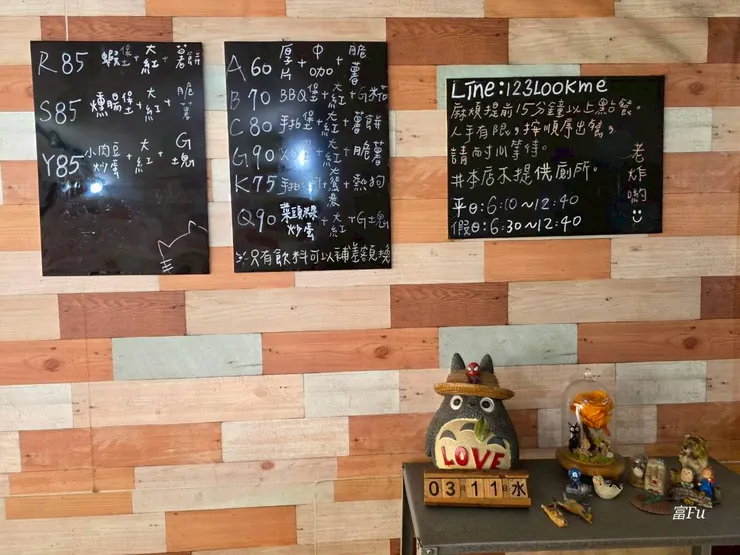 R 85 蝦堡+大紅+薯餅
S 85 燻腸堡+大紅+脆薯
Y 85 小肉豆炒蛋+大紅+G塊
A 60 厚片+中咖+脆薯
B 70 BBQ堡+大紅+G
C 80 手拍堡+大紅+薯餅
G 90 大紅+脆薯
K 75 手拍+大+熱狗
Q 90 炒蛋+大紅+G塊
※只有飲料可以補差額換
Line:123lookme
麻煩提前15分鐘以上點餐。
人手有限,按順序出餐,
請耐心等待。
#本店不提供廁所。
平日:6:10~12:40
假日:6:30~12:40
老炸喲
LOVE
03月11日水
富Fu